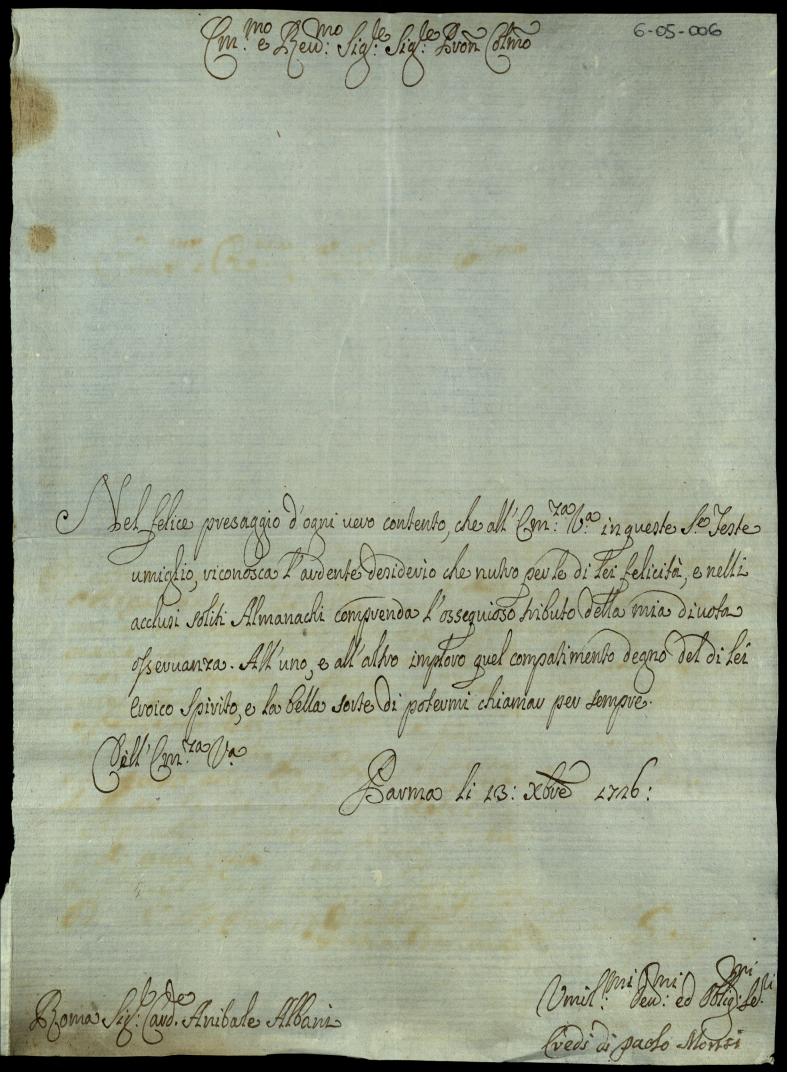 6-05-006
Em.mo e Reu.mo Sig.re Sig.re Pron Colmo
Nel felice presaggio d'ogni vero contento, che all' Em.za V.a in queste S.te Feste
umiglio, riconosca l'ardente desiderio che nutro per le di lei felicità, e nelli
acclusi soliti Almanachi comprenda l'ossequioso tributo della mia divota
osseruanza. All'uno, e all'altro imploro quel compatimento degno del di lei
eroico Spirito, e la bella sorte di potermi chiamar per sempre.
Dell' Em.za V.a
Parma li 13: Xbre 1726:
Roma Sig.r Card.e Anibale Albani
Umil.mi Deu.mi ed Oblig.mi Se.ri
Eredi di paolo Monti